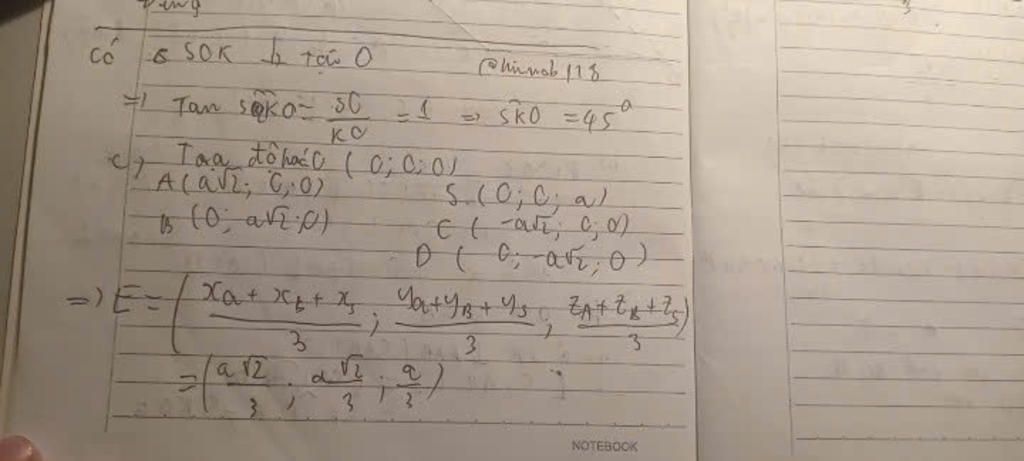 Có △ SOK ⊥ tại O
@hinnob118
=> Tan SKO = SO/KO = 1 => SKO = 45°
c, Tọa độ hóa O (0; 0; 0)
A(a√2; 0; 0) S (0; 0; a)
B (0; a√2; 0) C (-a√2; 0; 0)
D (0; -a√2; 0)
=> E = (xa + xB + xS / 3; ya + yB + yS / 3; zA + zB + zS / 3)
= (a√2 / 3; a√2 / 3; a / 3)
NOTEBOOK